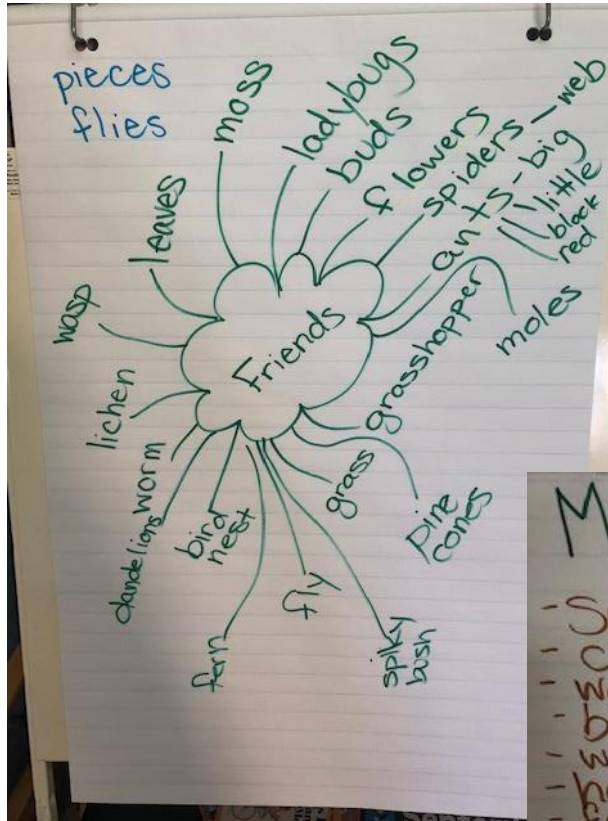 pieces
flies
moss
ladybugs
buds
flowers
spiders - web
ants - big
little
black
red
moles
grasshopper
pine
cones
grass
spiky
bush
fly
fern
bird
nest
dandelions
worm
lichen
wasp
leaves
Friends
M